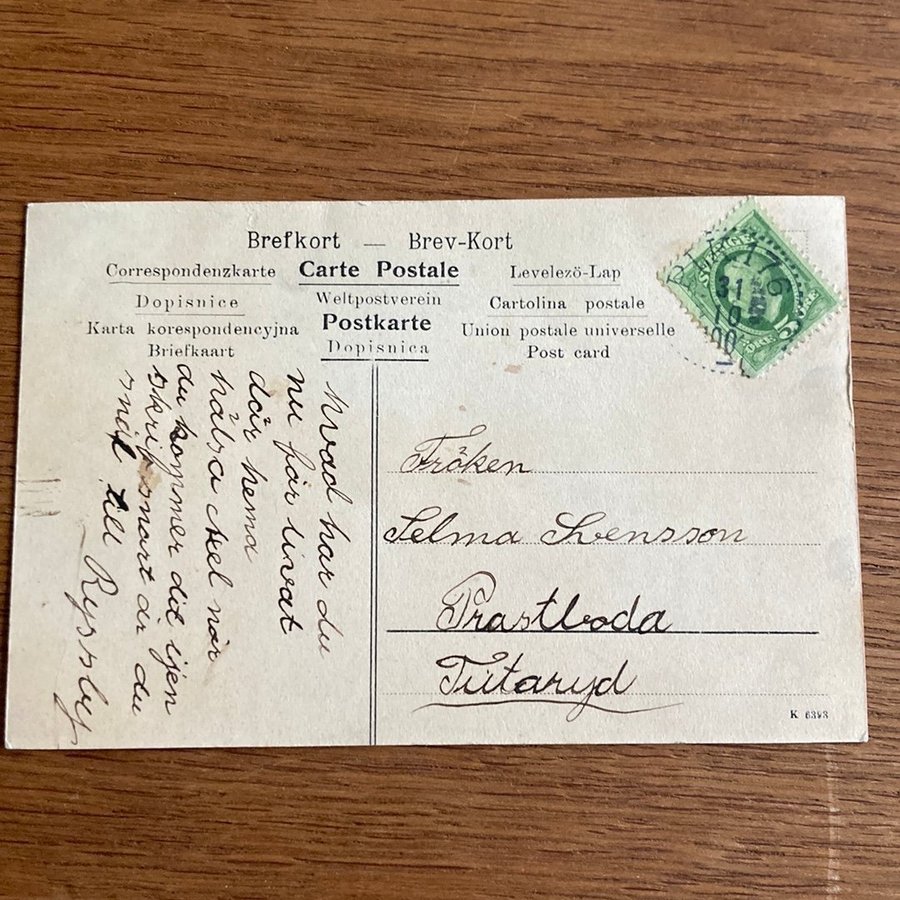 Brefkort — Brev-Kort
Correspondenzkarte Carte Postale Levelezö-Lap
Dopisnice Weltpostverein Cartolina postale
Karta korespondencyjna Postkarte Union postale universelle
Briefkaart Dopisnica Post card
SVERIGE
PLK 176
31
10
hvad har du
nu får livat
där hema
hälsa Axel när
du kommer dit ijen
skrif snart är du
snäl till Ryssby
Fröken
Selma Svensson
Prastboda
Tutaryd
K 6393